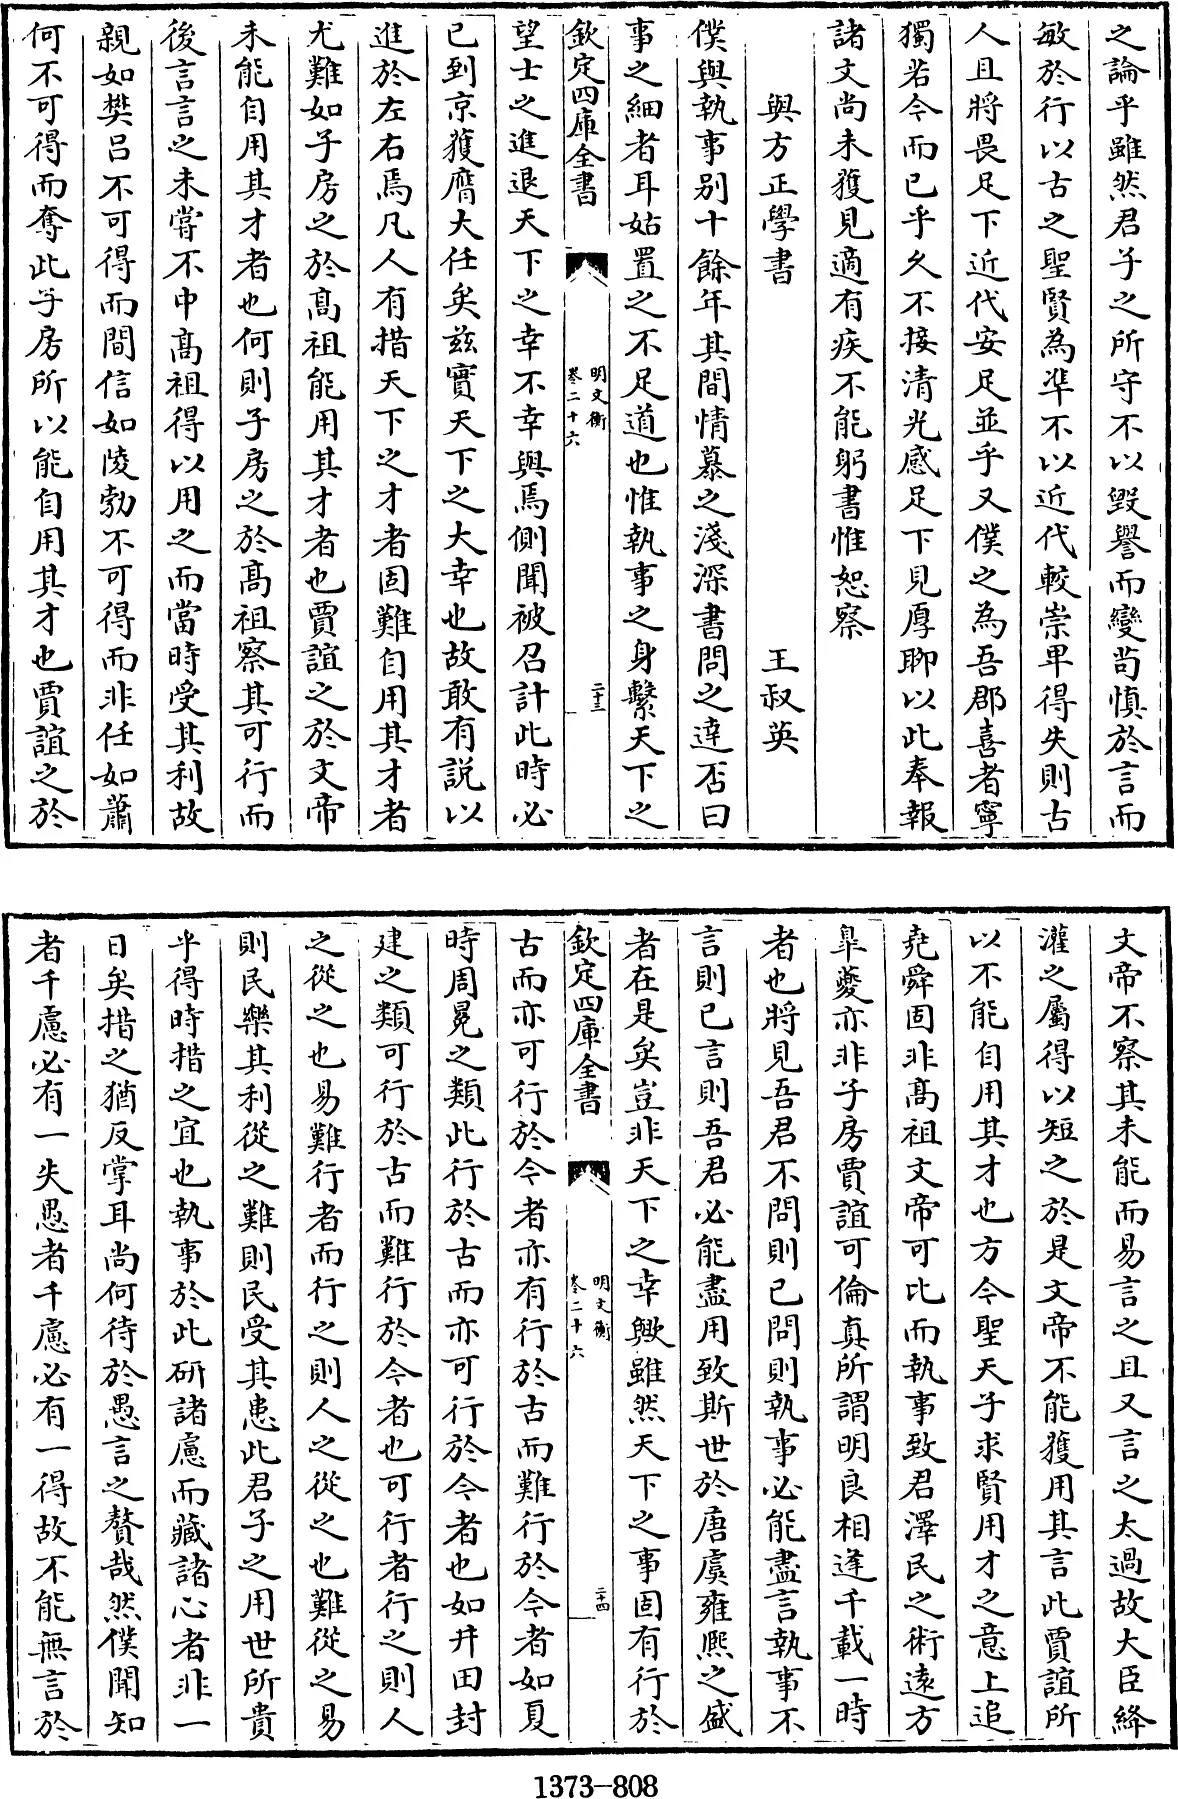 之論乎雖然君子之所守不以毀譽而變茍慎於言而
敏於行以古之聖賢為準不以近代較崇卑得失則古
人且將畏足下近代安足並乎又僕之為吾郡喜者寧
獨若今而已乎久不接清光感足下見厚聊以此奉報
諸文尚未獲見適有疾不能躬書惟恕察
與方正學書 王叔英
僕與執事别十餘年其間情慕之淺深書問之達否曰
事之細者耳姑置之不足道也惟執事之身繫天下之
欽定四庫全書
明文衡
卷二十六
二十三
望士之進退天下之幸不幸與焉側聞被召計此時必
已到京獲膺大任矣兹實天下之大幸也故敢有説以
進於左右焉凡人有措天下之才者固難自用其才者
尤難如子房之於髙祖能用其才者也賈誼之於文帝
未能自用其才者也何則子房之於髙祖察其可行而
後言言之未嘗不中髙祖得以用之而當時受其利故
親如樊吕不可得而間信如陵勃不可得而非任如蕭
何不可得而奪此子房所以能自用其才也賈誼之於
文帝不察其未能而易言之且又言之太過故大臣絳
灌之屬得以短之於是文帝不能獲用其言此賈誼所
以不能自用其才也方今聖天子求賢用才之意上追
堯舜固非髙祖文帝可比而執事致君澤民之術逺方
臯夔亦非子房賈誼可倫真所謂明良相逢千載一時
者也將見吾君不問則已問則執事必能盡言執事不
言則已言則吾君必能盡用致斯世於唐虞雍熙之盛
者在是矣豈非天下之幸歟雖然天下之事固有行於
欽定四庫全書
明文衡
卷二十六
二十四
古而亦可行於今者亦有行於古而難行於今者如夏
時周冕之類此行於古而亦可行於今者也如井田封
建之類可行於古而難行於今者也可行者行之則人
之從之也易難行者而行之則人之從之也難從之易
則民樂其利從之難則民受其患此君子之用世所貴
乎得時措之宜也執事於此研諸慮而藏諸心者非一
日矣措之猶反掌耳尚何待於愚言之贅哉然僕聞知
者千慮必有一失愚者千慮必有一得故不能無言於
1373-808